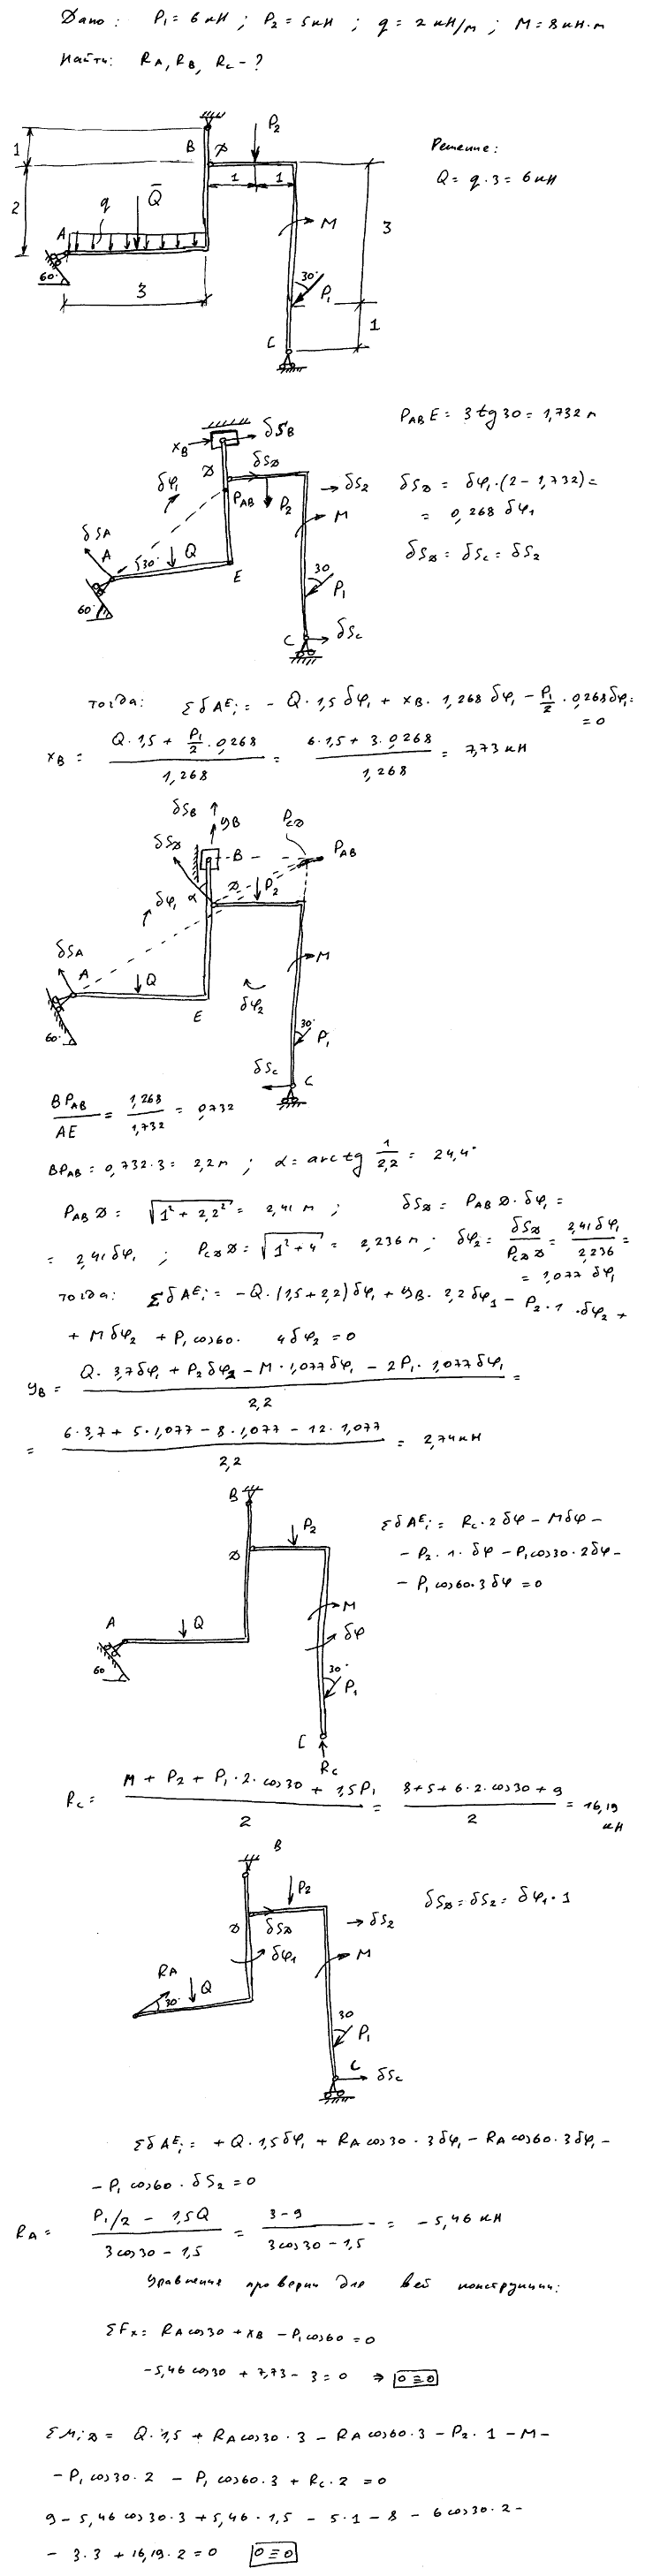 Дано: P₁ = 6 кН ; P₂ = 5 кН ; q = 2 кН/м ; M = 8 кН·м
Найти: RA, RB, RC - ?
P₂
B
D
1
1
1
2
q
Q̄
A
60°
3
M
3
30°
P₁
1
C
Решение:
Q = q·3 = 6 кН
PAB E = 3 tg 30 = 1,732 м
δSB
XB
D
δSD
δφ₁
PAB
P₂
→ δS₂
M
δSA
A
30°
Q
E
30
P₁
60°
C
δSC
δSD = δφ₁·(2 - 1,732) =
= 0,268 δφ₁
δSD = δSC = δS₂
тогда: ΣδAᴱᵢ = - Q·1,5 δφ₁ + XB·1,268 δφ₁ - P₁/2 · 0,268 δφ₁ =
= 0
XB = (Q·1,5 + P₁/2 · 0,268) / 1,268 = (6·1,5 + 3·0,268) / 1,268 = 7,73 кН
δSB
yB
PCD
δSD
B
PAB
α
D
P₂
δφ₁
δSA
A
Q
M
E
δφ₂
30°
P₁
60°
δSC
C
BPAB / AE = 1,268 / 1,732 = 0,732
BPAB = 0,732·3 = 2,2 м ; α = arctg 1/2,2 = 24,4°
PAB D = √(1² + 2,2²) = 2,41 м ; δSD = PAB D·δφ₁ =
= 2,41 δφ₁ ; PCD D = √(1² + 4) = 2,236 м ; δφ₂ = δSD / PCD D = 2,41 δφ₁ / 2,236 =
= 1,077 δφ₁
тогда: ΣδAᴱᵢ = -Q·(1,5 + 2,2) δφ₁ + yB·2,2 δφ₁ - P₂·1·δφ₂ +
+ M δφ₂ + P₁ cos 60· 4 δφ₂ = 0
yB = (Q·3,7 δφ₁ + P₂ δφ₂ - M·1,077 δφ₁ - 2P₁·1,077 δφ₁) / 2,2 =
= (6·3,7 + 5·1,077 - 8·1,077 - 12·1,077) / 2,2 = 2,74 кН
B
P₂
D
A
Q
M
δφ
60
30°
P₁
C
RC
ΣδAᴱᵢ = RC·2 δφ - M δφ -
- P₂·1·δφ - P₁ cos 30·2 δφ -
- P₁ cos 60·3 δφ = 0
RC = (M + P₂ + P₁·2·cos 30 + 1,5 P₁) / 2 = (8 + 5 + 6·2·cos 30 + 9) / 2 = 16,19
кН
B
P₂
D
δSD
→ δS₂
δφ₁
M
RA
30°
Q
30
P₁
C
δSC
δSD = δS₂ = δφ₁·1
ΣδAᴱᵢ = + Q·1,5 δφ₁ + RA cos 30·3 δφ₁ - RA cos 60·3 δφ₁ -
- P₁ cos 60·δS₂ = 0
RA = (P₁/2 - 1,5Q) / (3 cos 30 - 1,5) = (3 - 9) / (3 cos 30 - 1,5) = - 5,46 кН
Уравнения проверки для всей конструкции:
ΣFx = RA cos 30 + XB - P₁ cos 60 = 0
-5,46 cos 30 + 7,73 - 3 = 0 ⇒ 0 ≡ 0
ΣMᵢD = Q·1,5 + RA cos 30·3 - RA cos 60·3 - P₂·1 - M -
- P₁ cos 30·2 - P₁ cos 60·3 + RC·2 = 0
9 - 5,46 cos 30·3 + 5,46·1,5 - 5·1 - 8 - 6 cos 30·2 -
- 3·3 + 16,19·2 = 0 0 ≡ 0